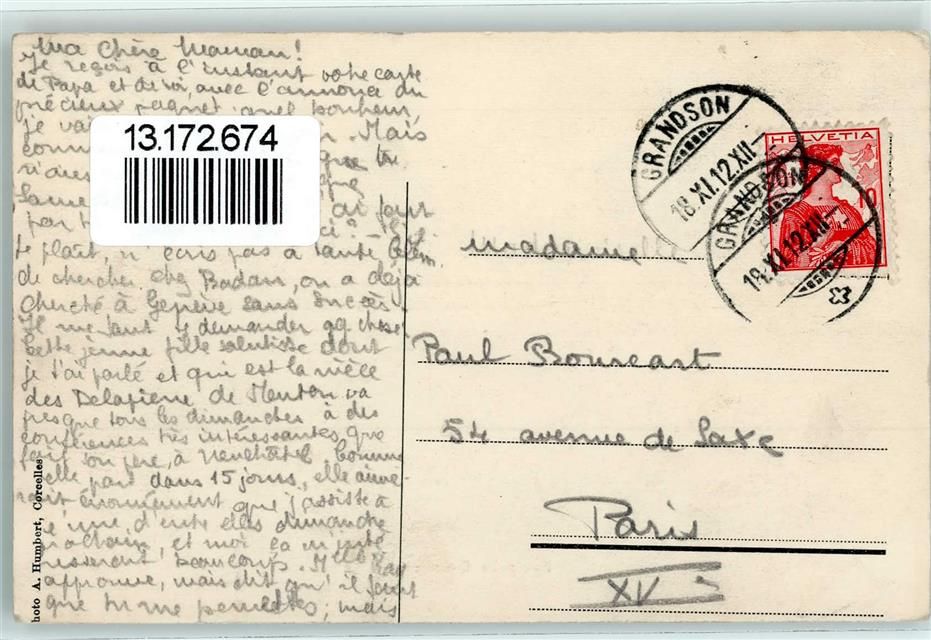 Ma Chère Maman!
Je reçois à l'instant votre carte
de Papa et de toi, avec l'annonce du
précieux paquet quel bonheur,
je va
Mais
13.172.674
par
te plaît, n'écris pas à Tante
de chercher chez Badan, on a déjà
cherché à Genève sans succès
Il me faut te demander qq chose
Cette jeune fille salutiste dont
je t'ai parlé et qui est la nièce
des Delapierre de Menton va
presque tous les dimanches à des
conférences très intéressantes que
fait son père, à Neuchâtel Comme
elle part dans 15 jours, elle aime-
rait énormément que j'assiste à
l'une d'entre elles dimanche
prochain, et moi ça m'inté
resserait beaucoup. Mlle
approuve, mais dit qu'il faut
que tu me permettes, mais
Photo A. Humbert, Corcelles
GRANDSON
18.XI.12.XII-
HELVETIA
10
GRANDSON
18.XI.12.XII-
Madame
Paul Bourcart
54 avenue de Saxe
Paris
XV